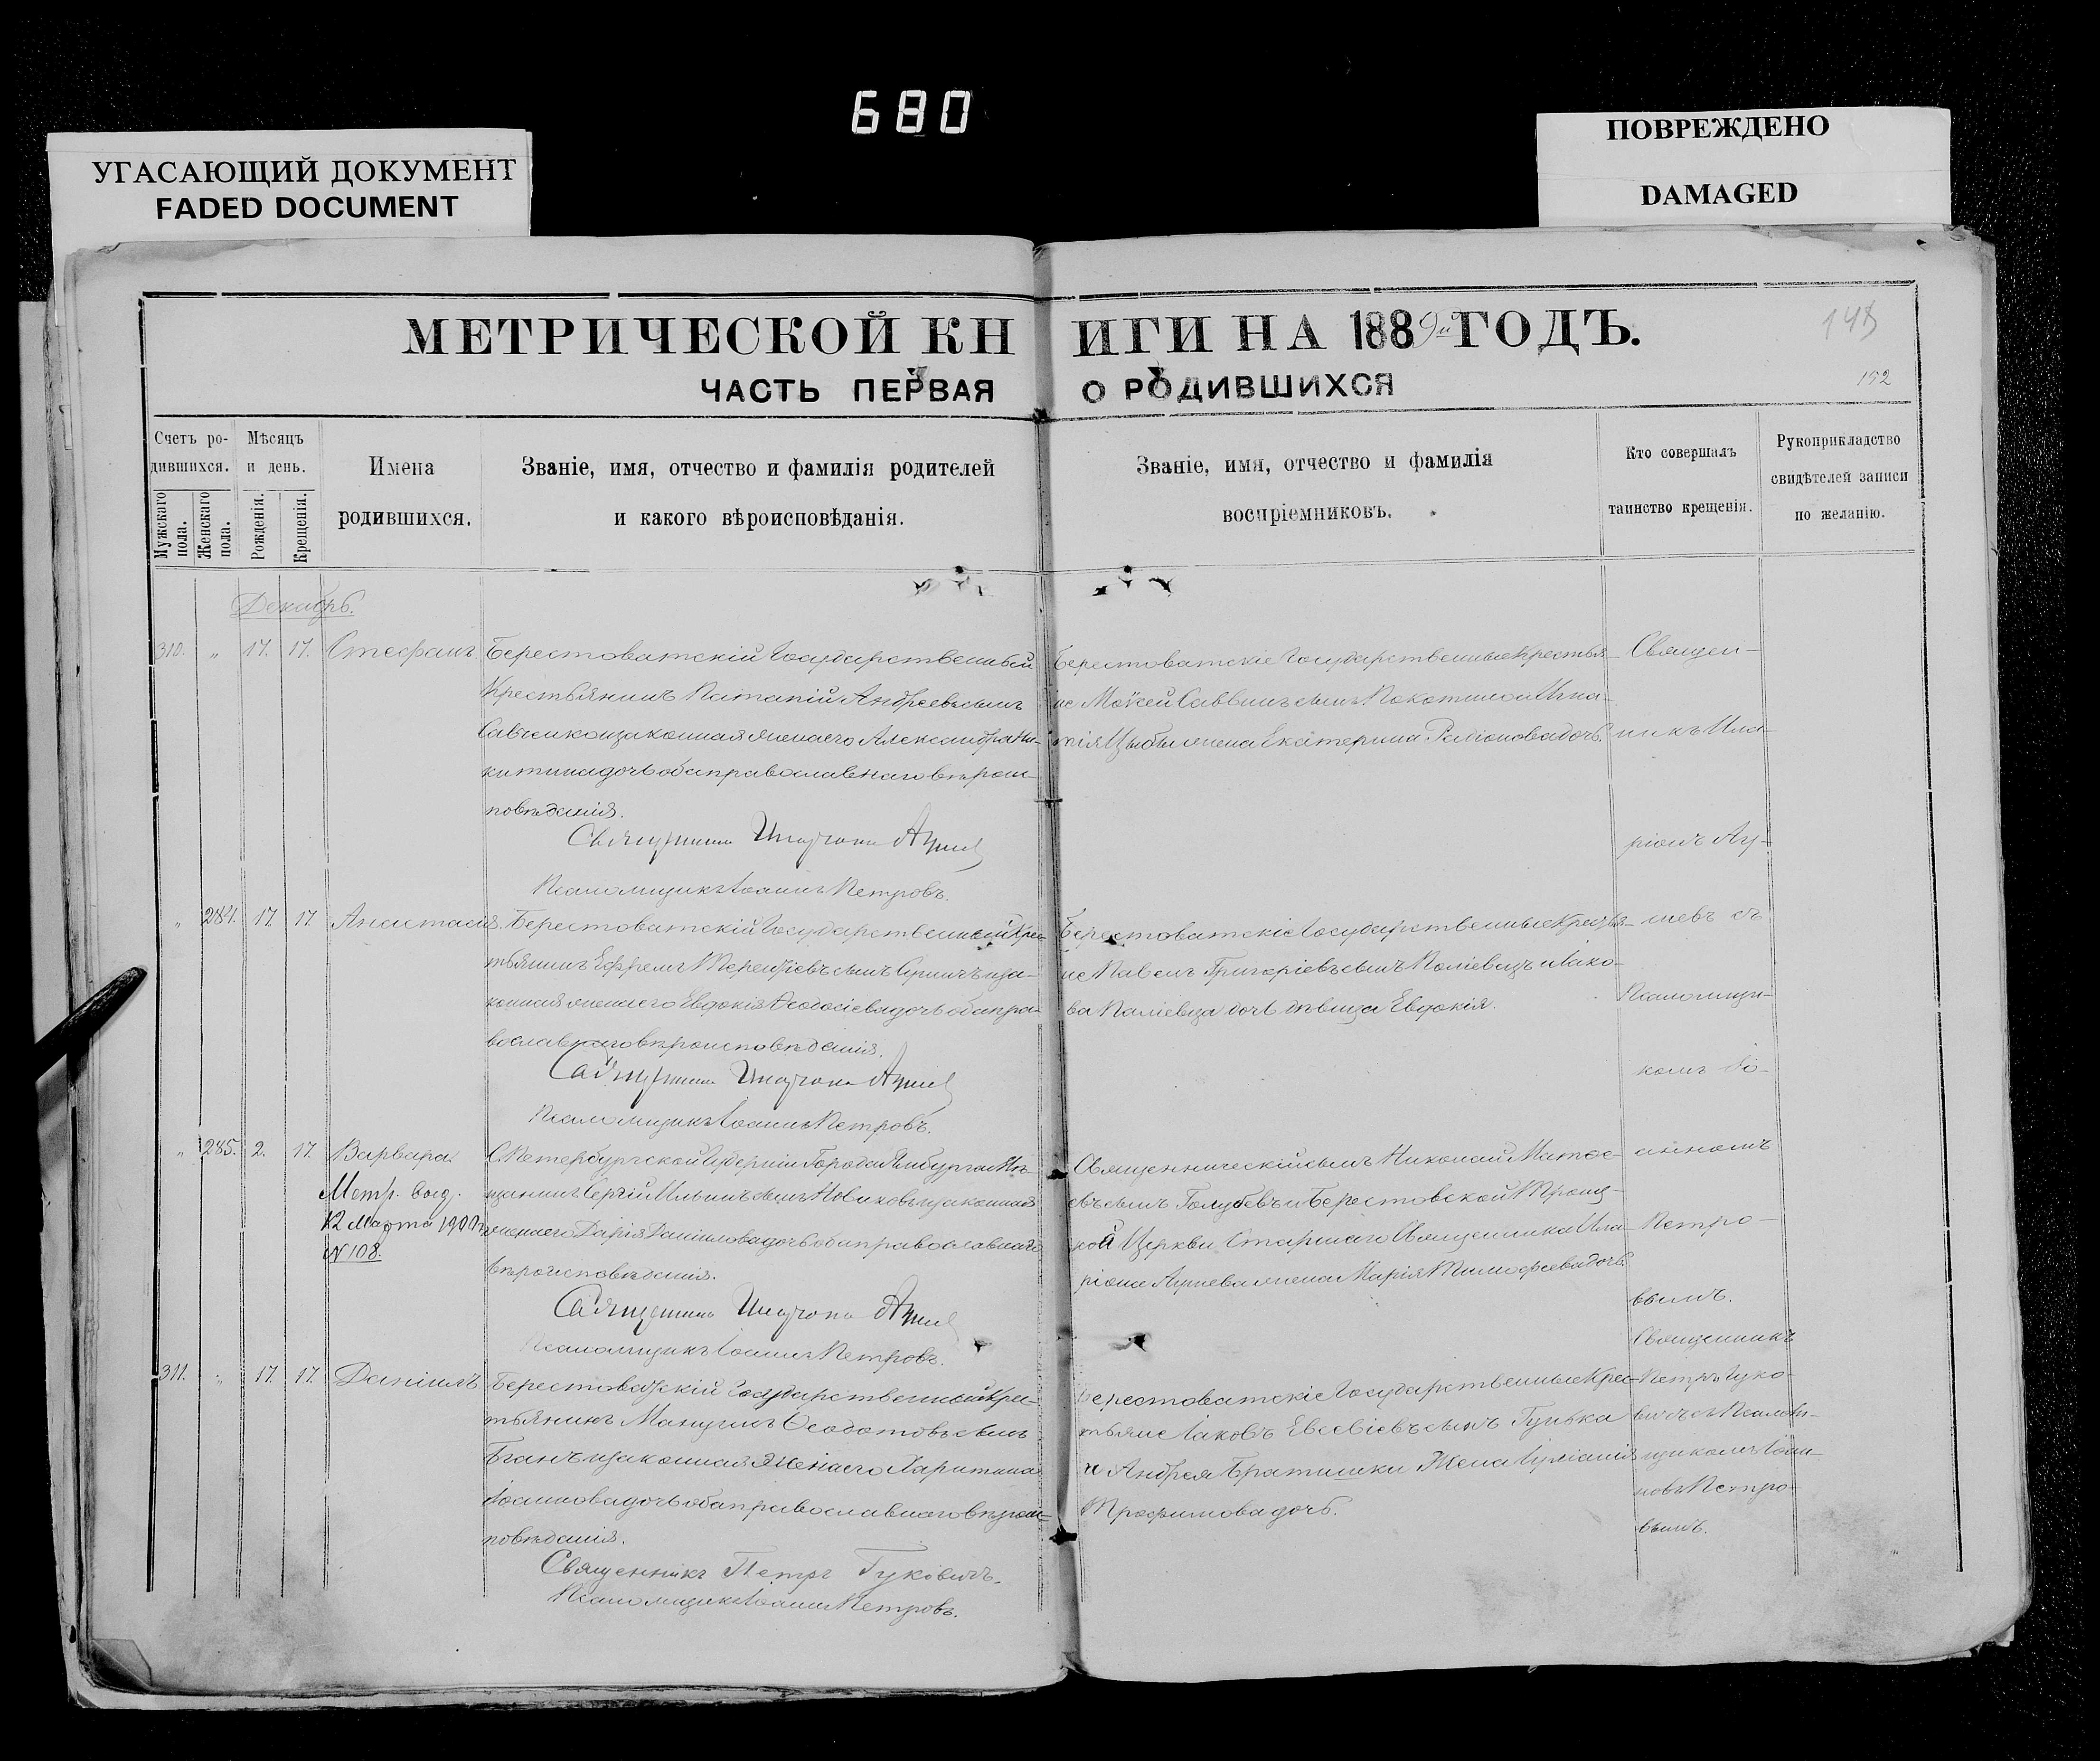 680
УГАСАЮЩИЙ ДОКУМЕНТ
FADED DOCUMENT
ПОВРЕЖДЕНО
DAMAGED
МЕТРИЧЕСКОЙ КНИГИ НА 1889й ГОДЪ.
152
ЧАСТЬ ПЕРВАЯ О РОДИВШИХСЯ
Счетъ ро-
дившихся.
Мужскаго пола.
Женскаго пола.
Мѣсяцъ
и день.
Рожденія.
Крещенія.
Имена
родившихся.
Званіе, имя, отчество и фамилія родителей
и какого вѣроисповѣданія.
Званіе, имя, отчество и фамилія
воспріемниковъ.
Кто совершалъ
таинство крещенія.
Рукоприкладство
свидѣтелей записи
по желанію.
Декабрь.
310. " 17. 17. Стефанъ
Берестоватскій Государственный
Крестьянинъ Патапій Андреевъ сынъ
Савченко и законная жена его Александра Ни-
китина дочь оба православнаго вѣроис-
повѣданія.
Псаломщикъ Іоаннъ Петровъ.
Берестоватскіе Государственные Крестья-
не Мойсей Саввинъ сынъ Покотило и Игна-
тія Цыбы жена Екатерина Родіонова дочь.
" 284. 17. 17. Анастасія.
Берестоватскій Государственный Крес-
тьянинъ Ефремъ Терентіевъ сынъ и за-
конная жена его Евдокія Ѳеодосіева дочь оба пра-
вославнаго вѣроисповѣданія.
Псаломщикъ Іоаннъ Петровъ.
Берестоватскіе Государственные Крестья-
не Павелъ Григоріевъ сынъ Паліевецъ и Іако-
ва Паліевца дочь дѣвица Евдокія.
" 285. 2. 17. Варвара.
Метр. выд.
12 Марта 1900 г.
№ 108.
С. Петербургской Губерніи Города Ямбурга Мѣ-
щанинъ Сергій Ильинъ сынъ Новиковъ и законная
жена его Дарія Даніилова дочь оба православнаго
вѣроисповѣданія.
Псаломщикъ Іоаннъ Петровъ.
Священническій сынъ Николай Матѳе-
евъ сынъ Голубевъ и Берестовской Троиц-
кой Церкви Старшаго Священника Ила-
ріона Ауліева жена Марія Тимофеева дочь.
311. " 17. 17. Даніилъ
Берестоватскій Государственный Крес-
тьянинъ Мануилъ Ѳеодотовъ сынъ
и законная жена его Харитина
Іоаннова дочь оба православнаго вѣроис-
повѣданія.
Священникъ Петръ Гуковичъ.
Псаломщикъ Іоаннъ Петровъ.
Берестоватскіе Государственные Крес-
тьяне Іаковъ Евсевіевъ сынъ Гулька
и Андрея Братишки Жена Іуліанія
Трофимова дочь.
Священ-
никъ Ила-
ріонъ
съ
Псаломщи-
комъ Іо-
анномъ
Петро-
вымъ.
Священникъ
Петръ Гуко-
вичъ съ Псалом-
щикомъ Іоан-
номъ Петро-
вымъ.